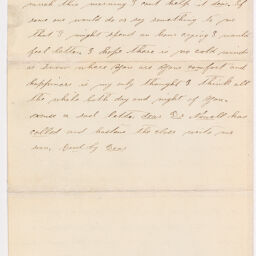 much this morning I cant help it dear. If
some one would do or say something to me
that I might spend an hour crying I would
feel better. I hope there is no cold wind
or snow where you are your comfort and
happiness is my only thought I think all
the while both day and night of you.
excuse a sad letter dear Ed Newell has
called and business the close write me
soon. Good by Dear